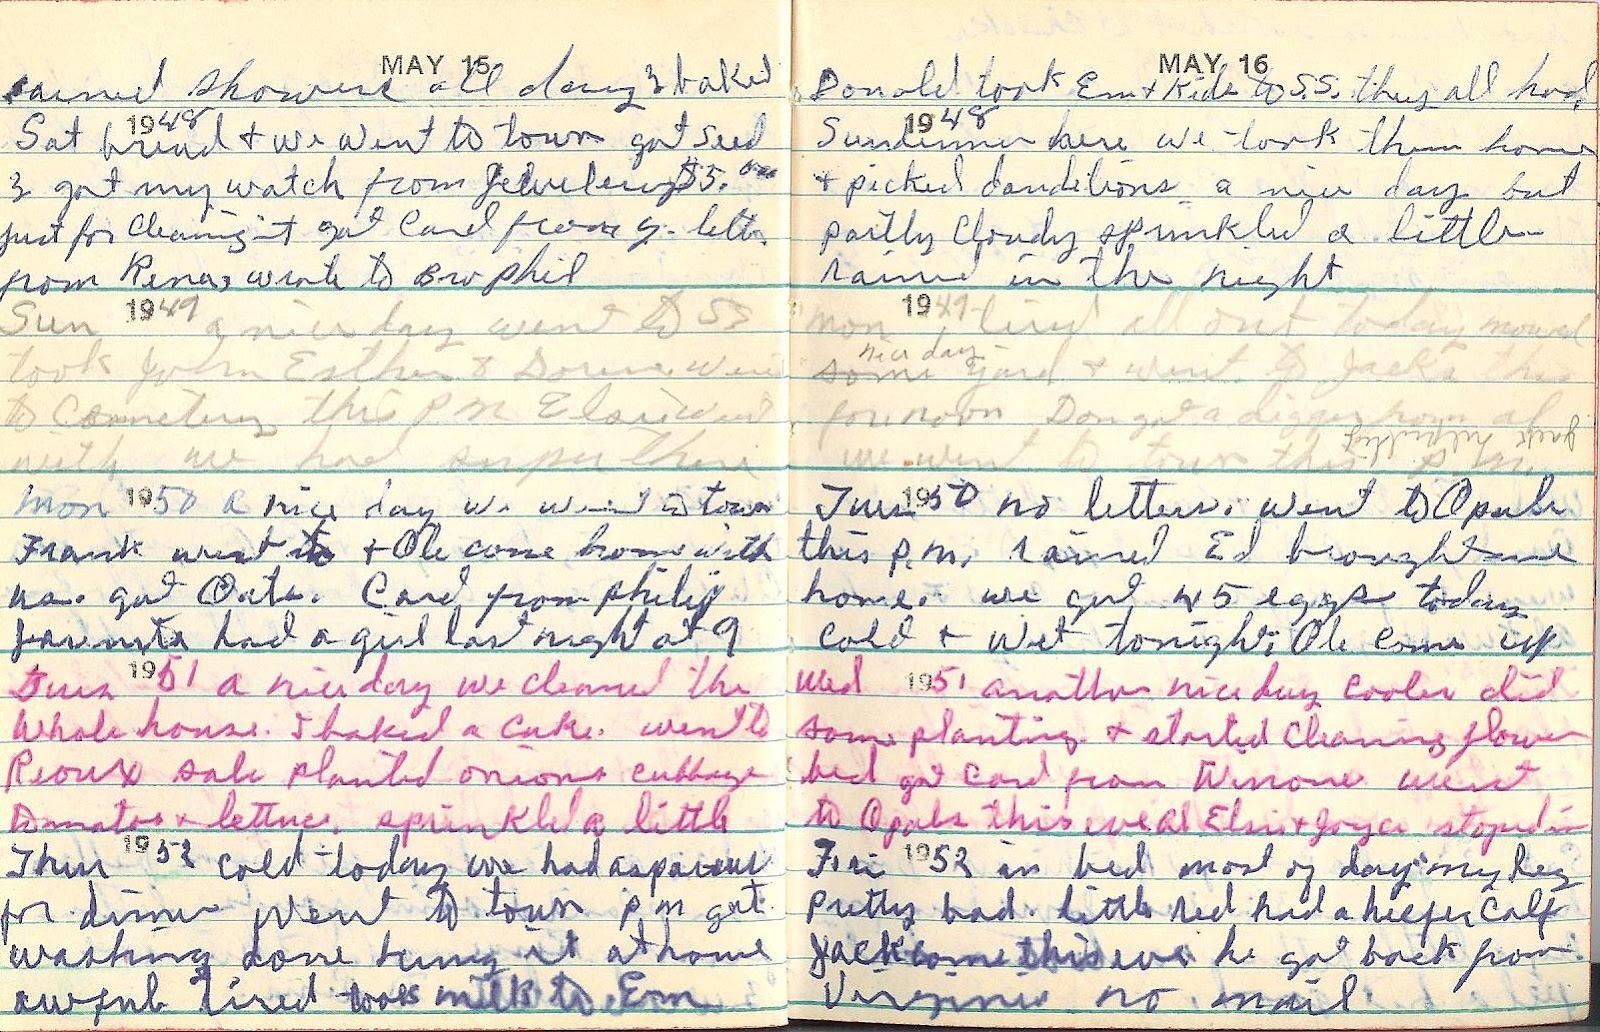 MAY 15
rained showers all day I baked
Sat 1948 bread + we went to town got seed
I got my watch from Jewelery $5.00
just for cleaning it got Card from G. letter
from Rena, wrote to Bro phil
Sun 1949 a nice day went to SS
took John Esther & Dorine went
to Cemetery this P M Elsie went
with we had supper there
Mon 1950 a nice day we went to town
Frank went to + Ole come home with
us. got Oats. Card from philip
Juanita had a girl last night at 9
Tues 1951 a nice day we cleaned the
whole house. I baked a cake. went to
Rioux sale planted onions cabbage
Tomatos + lettuce. sprinkled a little
Thur 1952 cold today we had asparagus
for dinner went to town p m got
washing done hung it at home
awful tired took milk to Em
MAY 16
Donald took Em + Kids to S.S. they all had
Sun 1948 dinner here we took them home
+ picked dandilions a nice day but
partly Cloudy sprinkled a little
rained in the night
Mon 1949 tird all out today mowed
nice day
some yard + went to Jacks this
forenoon Don got a digger from al
Jack helped
we went to town this P.M.
Tues 1950 no letters. went to Opals
this p.m. rained Ed brought me
home. we got 45 eggs today
cold + wet tonight. Ole come up
Wed 1951 another nice day cooler did
some planting + started cleaning flower
bed got card from Winone went
to Opals this eve Al Elsie + Joyce stoped in
Fri 1952 in bed most of day my leg
pretty bad. little red had a heifer calf
Jack come this eve he got back from
Virginia no mail